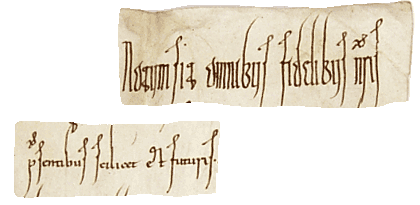 Notum sit omnibus fidelibus nris
p̄sentibus scilicet et futuris.